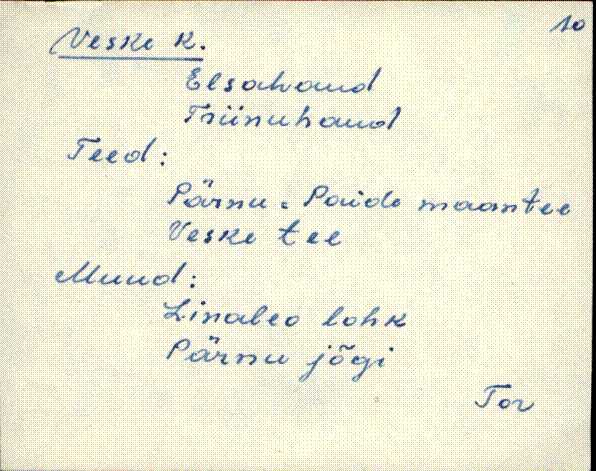 10
Veske k.
Elsahaud
Triinuhaud
Teed:
Pärnu - Paide maantee
Veske tee
Muud:
Linaleo lohk
Pärnu jõgi
Tor